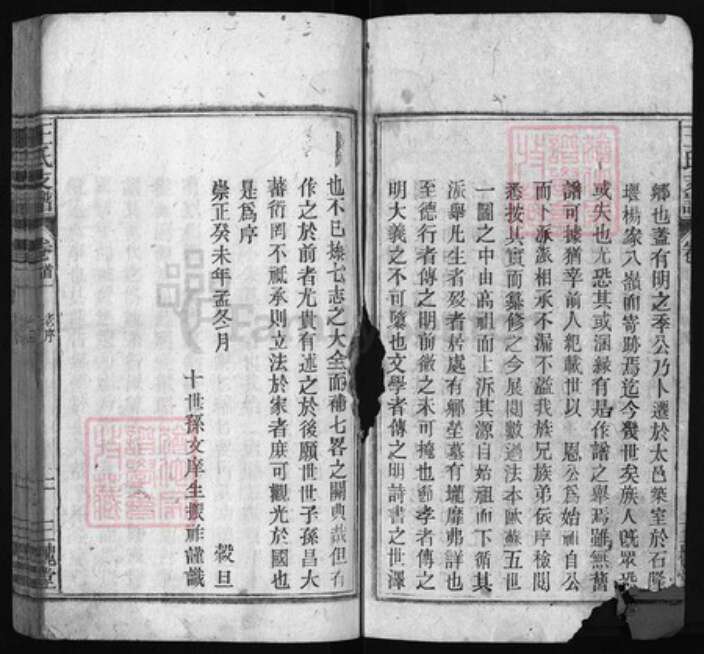 鄉也蓋有明之季公乃卜遷於太邑築室於石隆
壩楊家八嶺而寄跡焉迄今幾世矣族人旣眾恐
或失也尤恐其或溷緣有是作譜之舉焉雖無舊
譜可據猶幸前人紀載世以 恩公爲始祖自公
而下派派相承不漏不溢我族兄族弟依序檢閱
悉按其實而纂修之今展閱數過法本歐蘇五世
一圖之中由高祖而上泝其源自始祖而下循其
派舉凡生者歿者居處有鄉塋墓有壠靡弗詳也
至德行者傳之明前徽之未可掩也節孝者傳之
明大義之不可隳也文學者傳之明詩書之世澤
也不已媲七志之大全而補七畧之闕典哉但有
作之於前者尤貴有述之於後願世世子孫昌大
蕃衍罔不祗承則立法於家者庶可觀光於國也
是爲序
崇正癸未年孟冬月 穀旦
十世孫文庠生振祚謹識
王氏支譜 卷首 老序 二